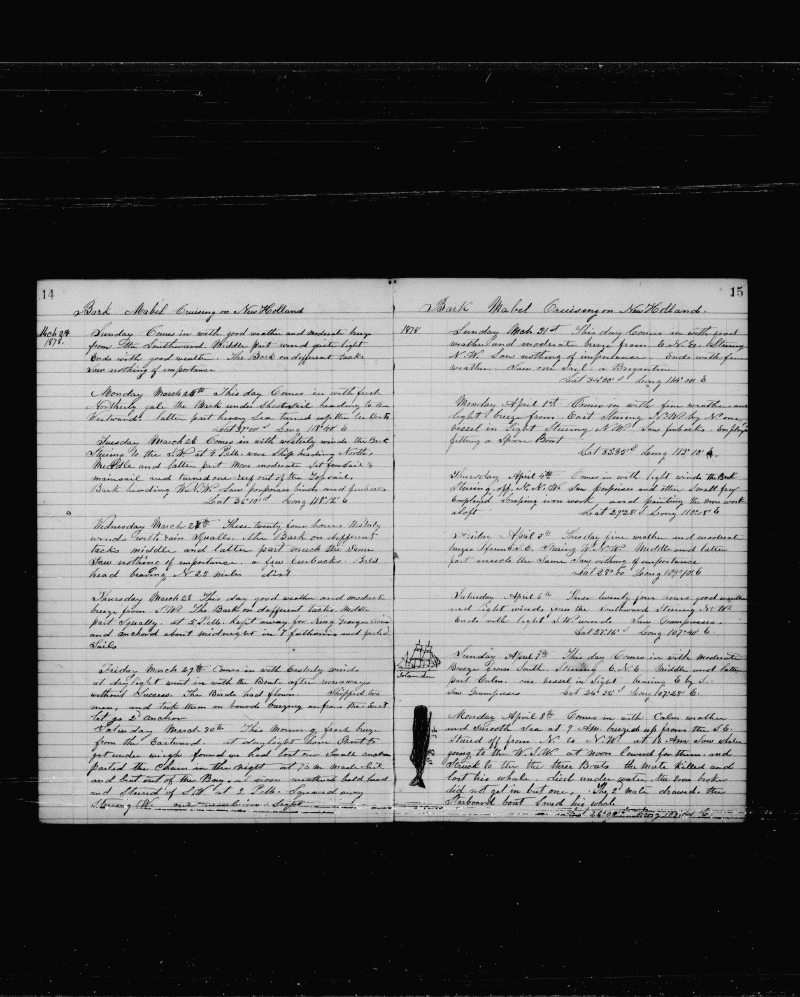 14
Bark Mabel Cruising on New Holland
Mch 24
1878.
Sunday Comes in with good weather and moderate breeze
from the Southward. Middle part wind quite light
Ends with good weather. The Bark on different tacks
Saw nothing of importance
Monday March 25th This day Comes in with fresh
Northerly gale the Bark under Short Sail heading to the
Westward. latter part heavy Sea turned
Long 118°48' E
Tuesday March 26 Comes in with westerly winds the Bark
Stering to the at 4 P.M. wore Ship heading North
Middle and latter part More moderate Set foresail &
mainsail and turned one reef out of the Topsails
Bark heading W.N.W. Saw porpoises birds and finbacks
Lat 36°10' S Long 118°12' E
Wednesday March 27th These twenty four hours Westerly
winds with rain Squalls. the Bark on different
tacks middle and latter part much the Same
Saw nothing of importance. a few finbacks.
head bearing N 22 miles dist
Thursday March 28 This day good weather and modest
breeze from S.W. The Bark on different tacks. Middle
part Squally. at 5 P.M. Kept away for King Georges
and Anchord about midnight in 7 fathoms and furled
Sails
Friday March 29th Comes in with Easterly winds
at daylight went in with the Boat after runaways
without Success. The Birds had flown. Shipped two
men, and took them on board breezing on from the East
let go 2d anchor
Saturday March 30th This Morning fresh breeze
from the Eastward at daylight hove Short to
get under weigh found we had lost our Small anchor
parted the Chain in the night at 7 am made Sail
and beat out of the Bay, at noon weathered bald head
and Steered of S.W at 2 P.M. Squared away
Steering W one vessel in Sight
15
Bark Mabel Cruising on New Holland.
1878
Sunday Mch 31st This day Comes in with good
weather and moderate breeze from E.N.E. Stering
N.W. Saw nothing of importance Ends with fine
weather. Saw one Sail a Brigantine
Long 115°00' E
Monday April 1st Comes in with fine weather and
light breeze from East Stering N.W. by N. one
vessel in Sight Stering N.W. Saw finbacks. Employed
fitting a Spare Boat
Long 113°10' E
Thursday April 4th Comes in with light winds the Bark
Stering off N.N.W. Saw porpoises and other Small fry
Employed Scraping iron work and painting the iron work
aloft. Lat 29°28' S Long 110°08' E
Friday April 5th Tuesday fine weather and moderate
breeze from S.E. Stering N.N.W. Middle and latter
part much the Same Saw nothing of importance
Long 109°10' E
Saturday April 6th These twenty four hours good weather
and light winds from the Southward Stering N.W.
Ends with light S.W. winds Saw Grampuses.
Lat 27°16' Long 107°40' E.
Islander
Sunday April 7th This day Comes in with moderate
Breeze from South. Stering E.N.E. Middle and latter
part Calm. one vessel in Sight bearing E by S.
Saw Grampuses Long 107°28' E.
Monday April 8th Comes in with Calm weather
and Smooth Sea at 9 A.M. breezed up from the S.E.
Stered off N. & N.W. at 11 Am Saw whales
going to the W.S.W. at noon lowered for them, and
Struck to the three Boats the Mate killed and
lost his whale. died under water the iron broke
did not get in but one, The 2d mate drawed. the
Starboard boat Saved his whale